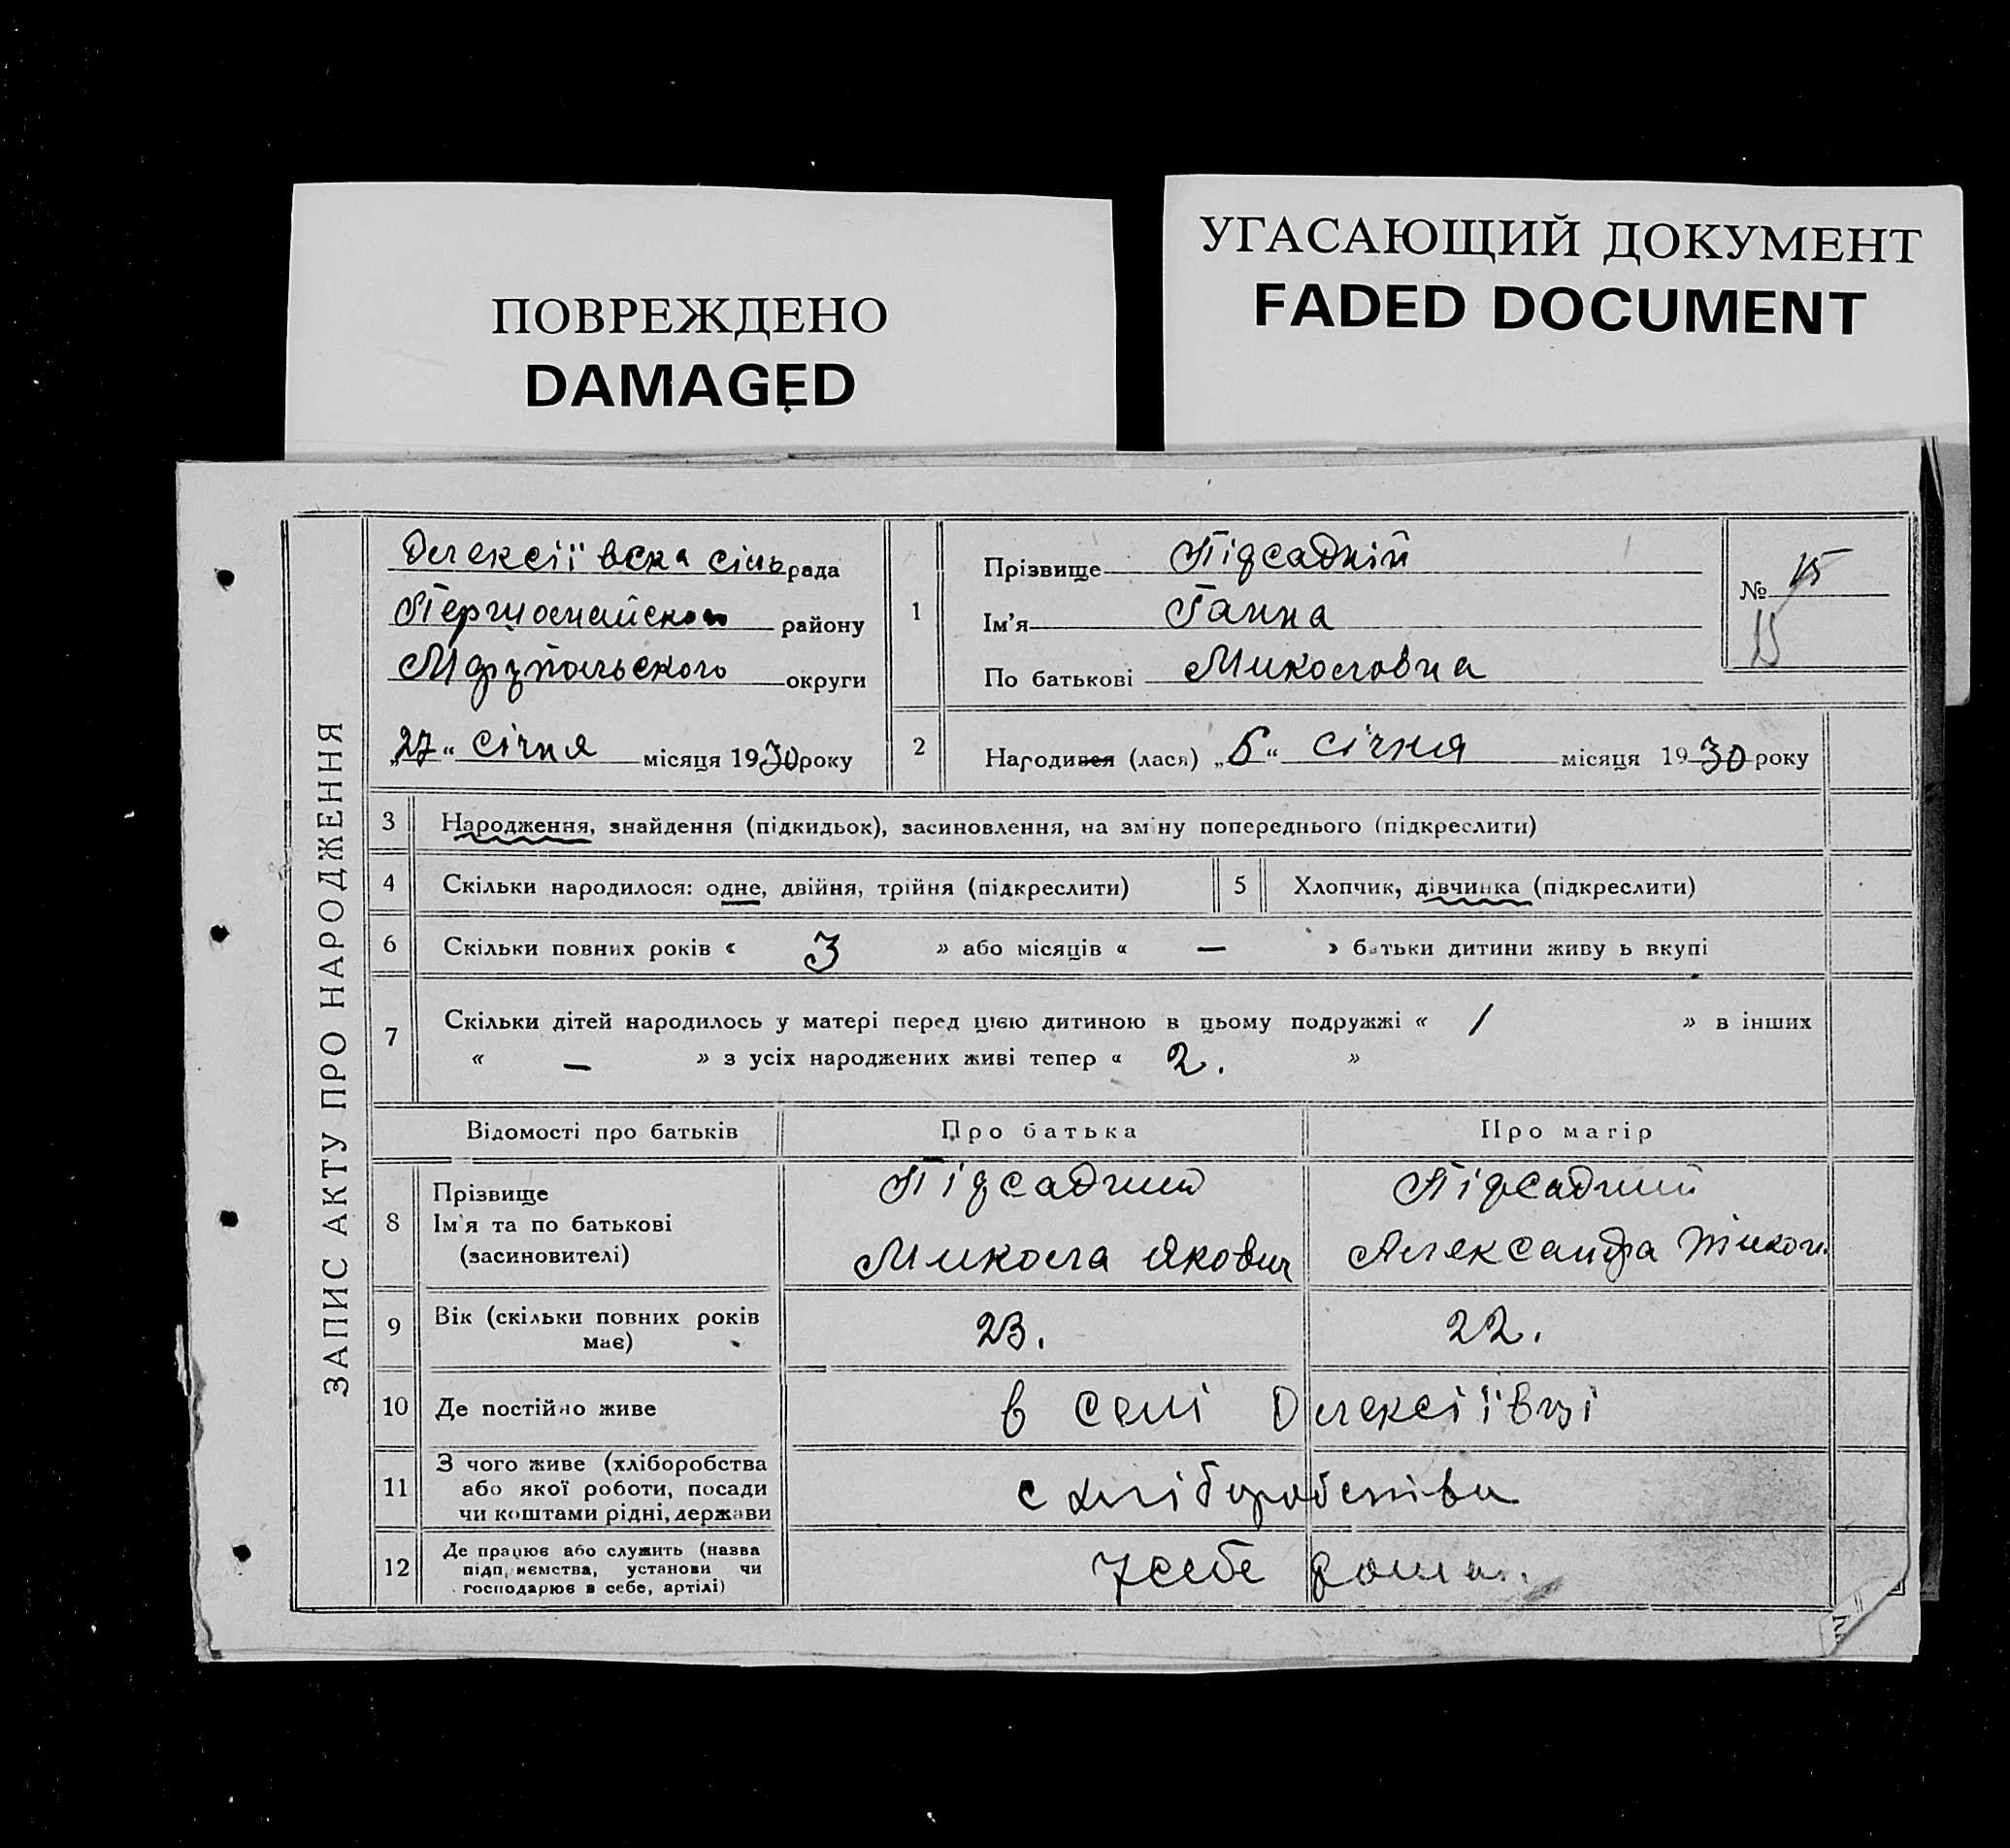 ПОВРЕЖДЕНО
DAMAGED
УГАСАЮЩИЙ ДОКУМЕНТ
FADED DOCUMENT
ЗАПИС АКТУ ПРО НАРОДЖЕННЯ
Олексіївска сільрада
району
округи
„27“ січня місяця 1930 року
1
Прізвище Підсадній
Ім'я Ганна
По батькові Миколовна
№ 15
15
2
Народився (лася) „6“ січня місяця 1930 року
3 Народження, знайдення (підкидьок), засиновлення, на зміну попереднього (підкреслити)
4 Скільки народилося: одне, двійня, трійня (підкреслити)
5 Хлопчик, дівчинка (підкреслити)
6 Скільки повних років « 3 » або місяців « — » батьки дитини живу ь вкупі
7 Скільки дітей народилось у матері перед цією дитиною в цьому подружжі « 1 » в інших
« — » з усіх народжених живі тепер « 2. »
Відомості про батьків Про батька Про матір
8 Прізвище
Ім'я та по батькові
(засиновителі)
Підсадний
Микола Якович
Підсадний
Александра Тихон.
9 Вік (скільки повних років
має)
23. 22.
10 Де постійно живе
в селі Олексіївці
11 З чого живе (хліборобства
або якої роботи, посади
чи коштами рідні, держави
с хліборобства
12 Де працює або служить (назва
підприємства, установи чи
господарює в себе, артілі)
у себе дома.